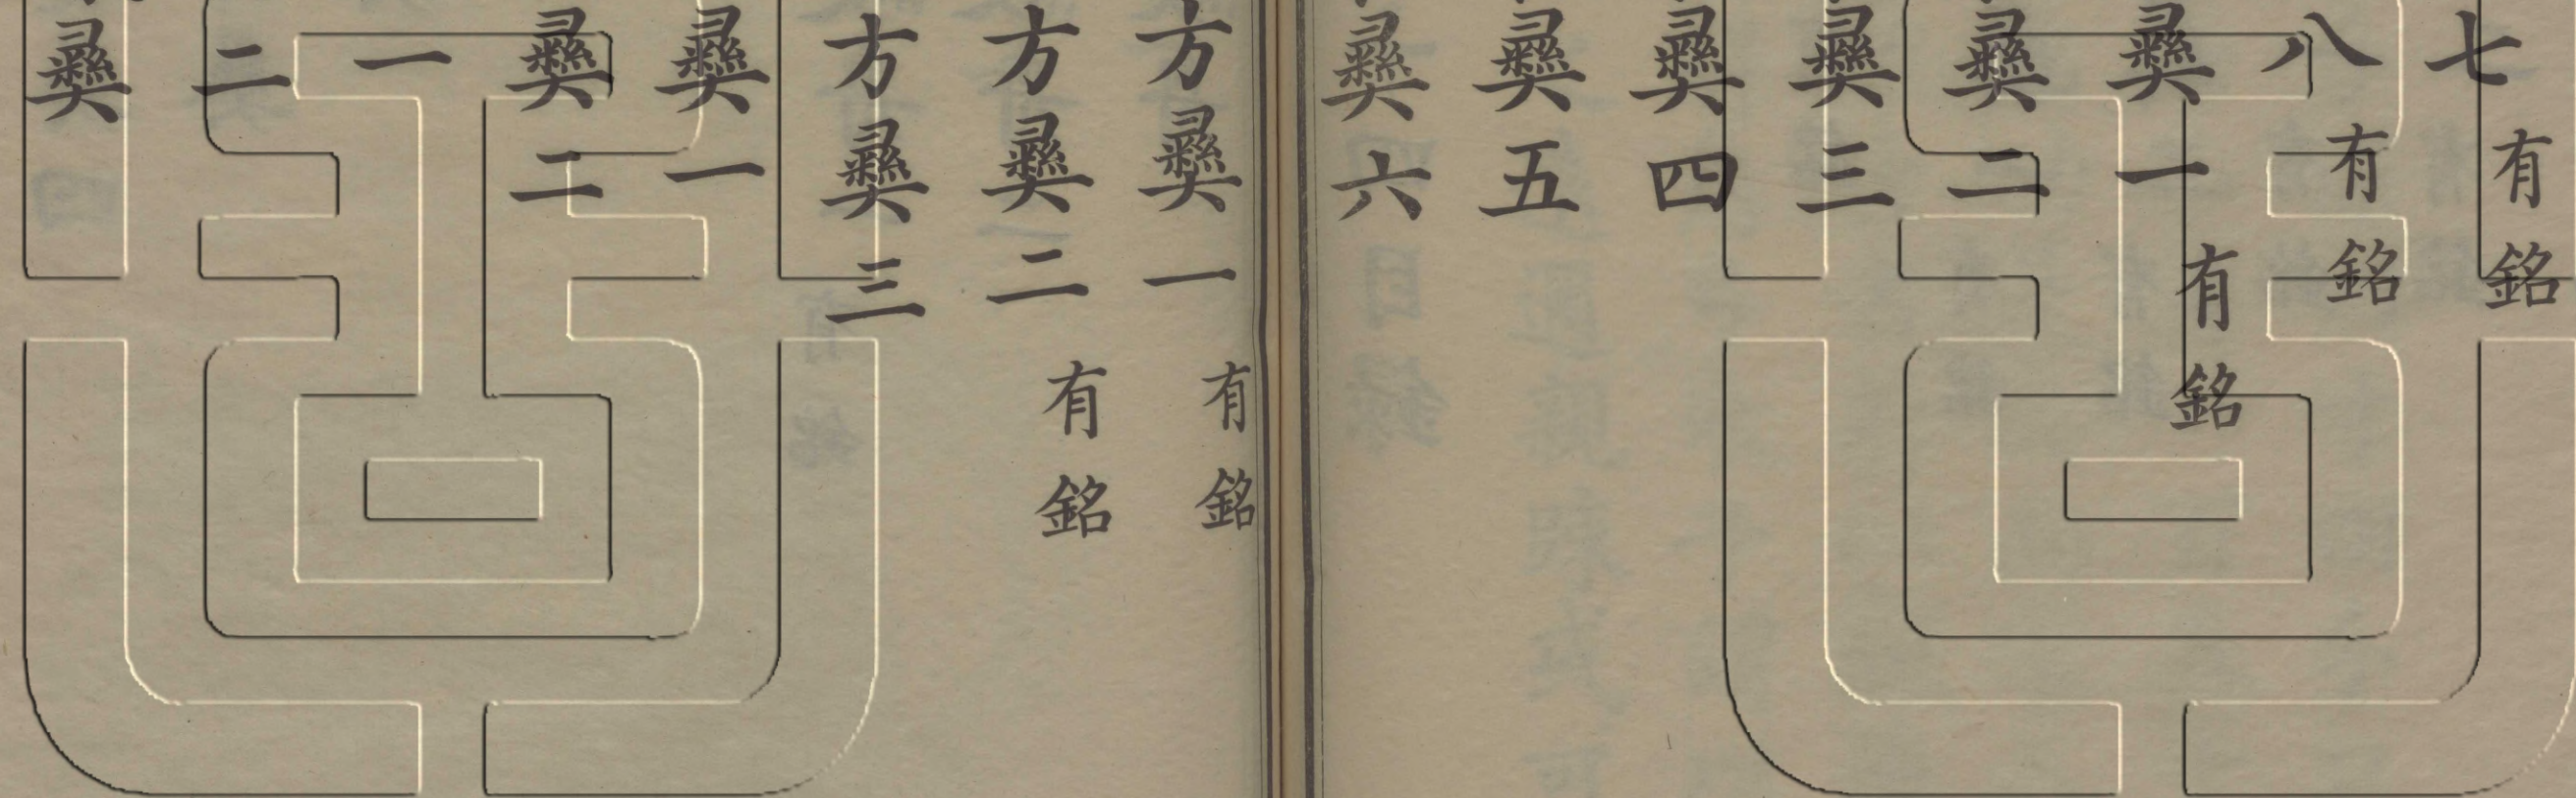 七有銘
八有銘
彝一有銘
彝二
彝三
彝四
彝五
彝六
方彝一有銘
方彝二有銘
方彝三
彝一
彝二
一
二
彝